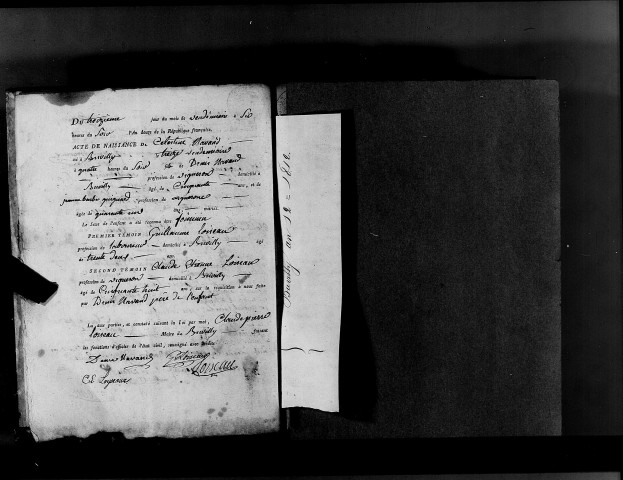 Du treizieme jour du mois de Vendémiaire à Six
heures du Soir l'An douze de la République française.
ACTE DE NAISSANCE De Celestine Navand
né à Breuilly le treize vendemiaire
à quatre heures du Soir fille de Denis Navand
profession de vigneron domicilié à
Breuilly âgé de Cinquante ans, et de
jeanne profession de vigneronne
âgée de quarante ans mariés
Le Sexe de l'enfant a été reconnu être féminin
PREMIER TÉMOIN Guillaume Loiseau
profession de laboureur domicilié à Breuilly âgé
de trente deux ans
SECOND TÉMOIN Claude Etienne Loiseau
profession de vigneron domicilié à Breuilly
âgé de Cinquante huit ans; sur la réquisition à nous faite
par Denis Navand père de l'enfant
Lu aux parties, et constaté suivant la Loi par moi, Claude pierre
Loiseau Maire de Breuilly faisant
les fonctions d'officier de l'état civil, soussigné avec
Denis Navand
Loiseau
C. E. Loiseau
Breuilly an 12 = 1810.